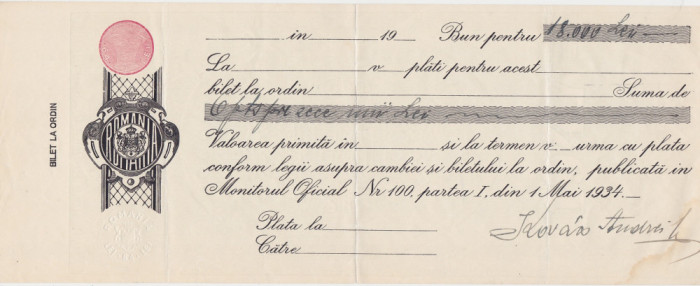 BILET LA ORDIN
ROMANIA
ROMANIA
in 19 Bun pentru 18.000 Lei
La v. plăti pentru acest
bilet la ordin Suma de
Optsprezece mii Lei
Valoarea primită în și la termen v. urma cu plata
conform legii asupra cambiei și biletului la ordin, publicată în
Monitorul Oficial Nr 100, partea I, din 1 Mai 1934.
Plata la
Către
Kovács Andrei